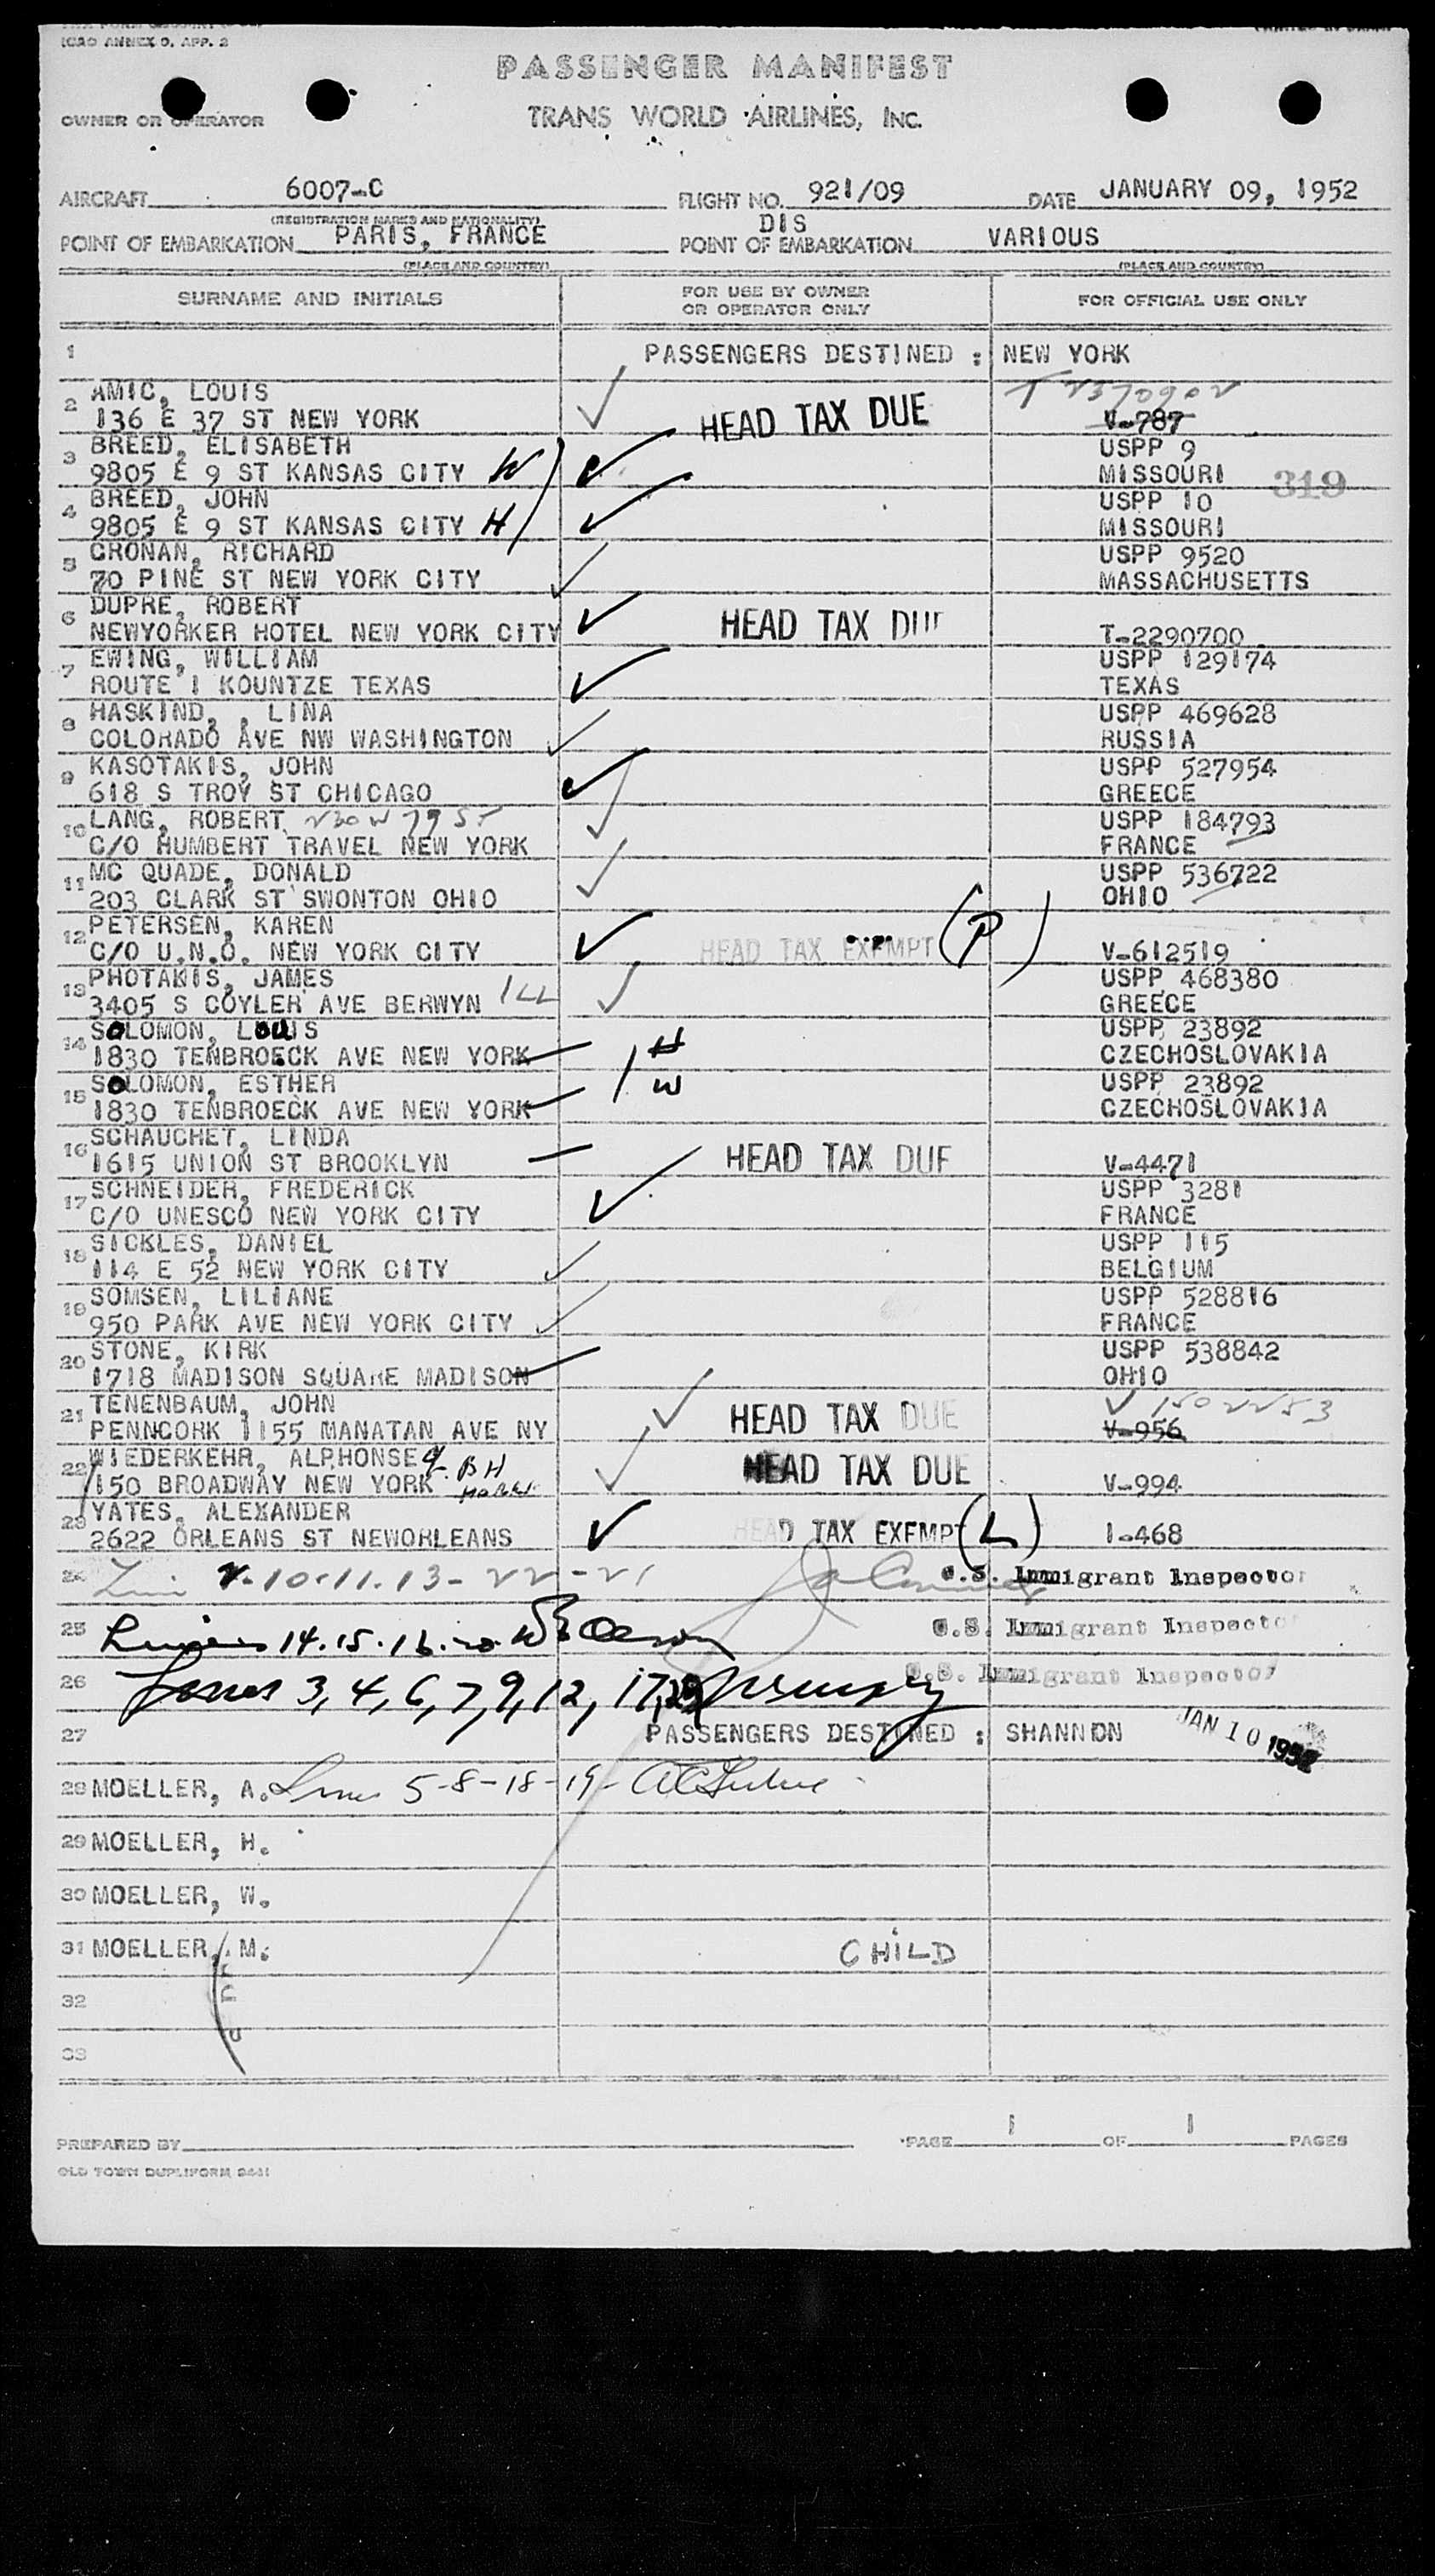 ICAO ANNEX 9, APP. 2
PASSENGER MANIFEST
OWNER OR OPERATOR
TRANS WORLD AIRLINES, INC.
AIRCRAFT 6007-C FLIGHT NO. 921/09 DATE JANUARY 09, 1952
(REGISTRATION MARKS AND NATIONALITY) DIS
POINT OF EMBARKATION PARIS, FRANCE POINT OF EMBARKATION VARIOUS
(PLACE AND COUNTRY) (PLACE AND COUNTRY)
SURNAME AND INITIALS FOR USE BY OWNER OR OPERATOR ONLY FOR OFFICIAL USE ONLY
1 PASSENGERS DESTINED : NEW YORK
2 AMIC, LOUIS T 2370902
136 E 37 ST NEW YORK HEAD TAX DUE V-787
3 BREED, ELISABETH USPP 9
9805 E 9 ST KANSAS CITY W MISSOURI 319
4 BREED, JOHN USPP 10
9805 E 9 ST KANSAS CITY H MISSOURI
5 CRONAN, RICHARD USPP 9520
70 PINE ST NEW YORK CITY MASSACHUSETTS
6 DUPRE, ROBERT
NEWYORKER HOTEL NEW YORK CITY HEAD TAX DUE T-2290700
7 EWING, WILLIAM USPP 129174
ROUTE 1 KOUNTZE TEXAS TEXAS
8 HASKIND, , LINA USPP 469628
COLORADO AVE NW WASHINGTON RUSSIA
9 KASOTAKIS, JOHN USPP 527954
618 S TROY ST CHICAGO GREECE
10 LANG, ROBERT 230 W 79 ST USPP 184793
C/O HUMBERT TRAVEL NEW YORK FRANCE
11 MC QUADE, DONALD USPP 536722
203 CLARK ST SWONTON OHIO OHIO
12 PETERSEN, KAREN
C/O U.N.O. NEW YORK CITY HEAD TAX EXEMPT (P) V-612519
13 PHOTAKIS, JAMES USPP 468380
3405 S COYLER AVE BERWYN ILL GREECE
14 SOLOMON, LOUIS USPP 23892
1830 TENBROECK AVE NEW YORK H CZECHOSLOVAKIA
15 SOLOMON, ESTHER W USPP 23892
1830 TENBROECK AVE NEW YORK CZECHOSLOVAKIA
16 SCHAUCHET, LINDA
1615 UNION ST BROOKLYN HEAD TAX DUE V-4471
17 SCHNEIDER, FREDERICK USPP 3281
C/O UNESCO NEW YORK CITY FRANCE
18 SICKLES, DANIEL USPP 115
114 E 52 NEW YORK CITY BELGIUM
19 SOMSEN, LILIANE USPP 528816
950 PARK AVE NEW YORK CITY FRANCE
20 STONE, KIRK USPP 538842
1718 MADISON SQUARE MADISON OHIO
21 TENENBAUM, JOHN V 1502253
PENNCORK 1155 MANATAN AVE NY HEAD TAX DUE V-956
22 WIEDERKEHR, ALPHONSE
150 BROADWAY NEW YORK HEAD TAX DUE V-994
23 YATES, ALEXANDER
2622 ORLEANS ST NEWORLEANS HEAD TAX EXEMPT (L) I-468
24 2-10-11-13-22-21 U.S. Immigrant Inspector
25 14.15.16.20. U.S. Immigrant Inspector
26 Lines 3, 4, 6, 7, 9, 12, 17, 23 U.S. Immigrant Inspector
27 PASSENGERS DESTINED : SHANNON JAN 10 1952
28 MOELLER, A. Lines 5-8-18-19-
29 MOELLER, H.
30 MOELLER, W.
31 MOELLER, M. CHILD
32
33
PREPARED BY PAGE 1 OF 1 PAGES
OLD TOWN DUPLIFORM 9441